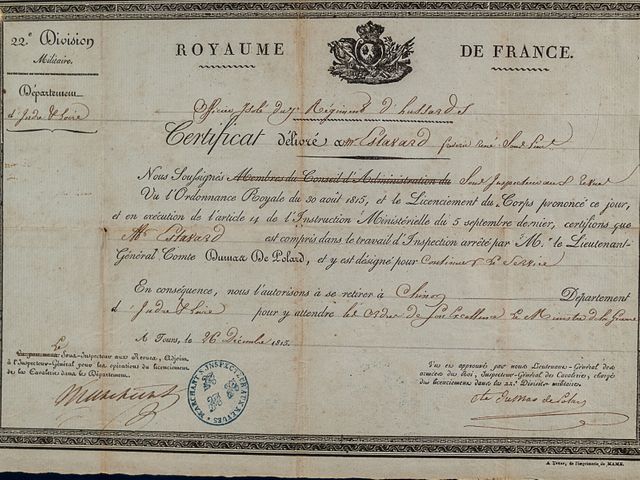 22.e Division
Militaire.
Département
d'Indre & Loire
ROYAUME DE FRANCE.
Officier isolé du 7e Régiment d'hussards
Certificat délivré a mr Estavard sous Lieut
Nous Soussignés Membres du Conseil d'Administration du Sous Inspecteur aux Revues
Vu l'Ordonnance Royale du 30 août 1815, et le Licenciement du Corps prononcé ce jour,
et en exécution de l'article 14 de l'Instruction Ministérielle du 5 septembre dernier, certifions que
Mr Estavard est compris dans le travail d'Inspection arrêté par M. le Lieutenant-
Général Comte Dumax De Polard, et y est désigné pour Continuer Le Service
En conséquence, nous l'autorisons à se retirer à Chinon Département
d'Indre & Loire pour y attendre les ordres de Son Excellence Le Ministre de la Guerre
A Tours, le 26 Décembre 1815.
Le
Sous-Inspecteur aux Revues, Adjoint
à l'Inspecteur-Général pour les opérations du licenciement
de la Cavalerie dans le Département.
MARCHANT S. INSPECTEUR AUX REVUES
Vu et approuvé par nous Lieutenant-Général des
armées du Roi, Inspecteur-Général de Cavalerie, chargé
du licenciement dans la 22.e Division militaire.
A Tours, de l'imprimerie de MAME.